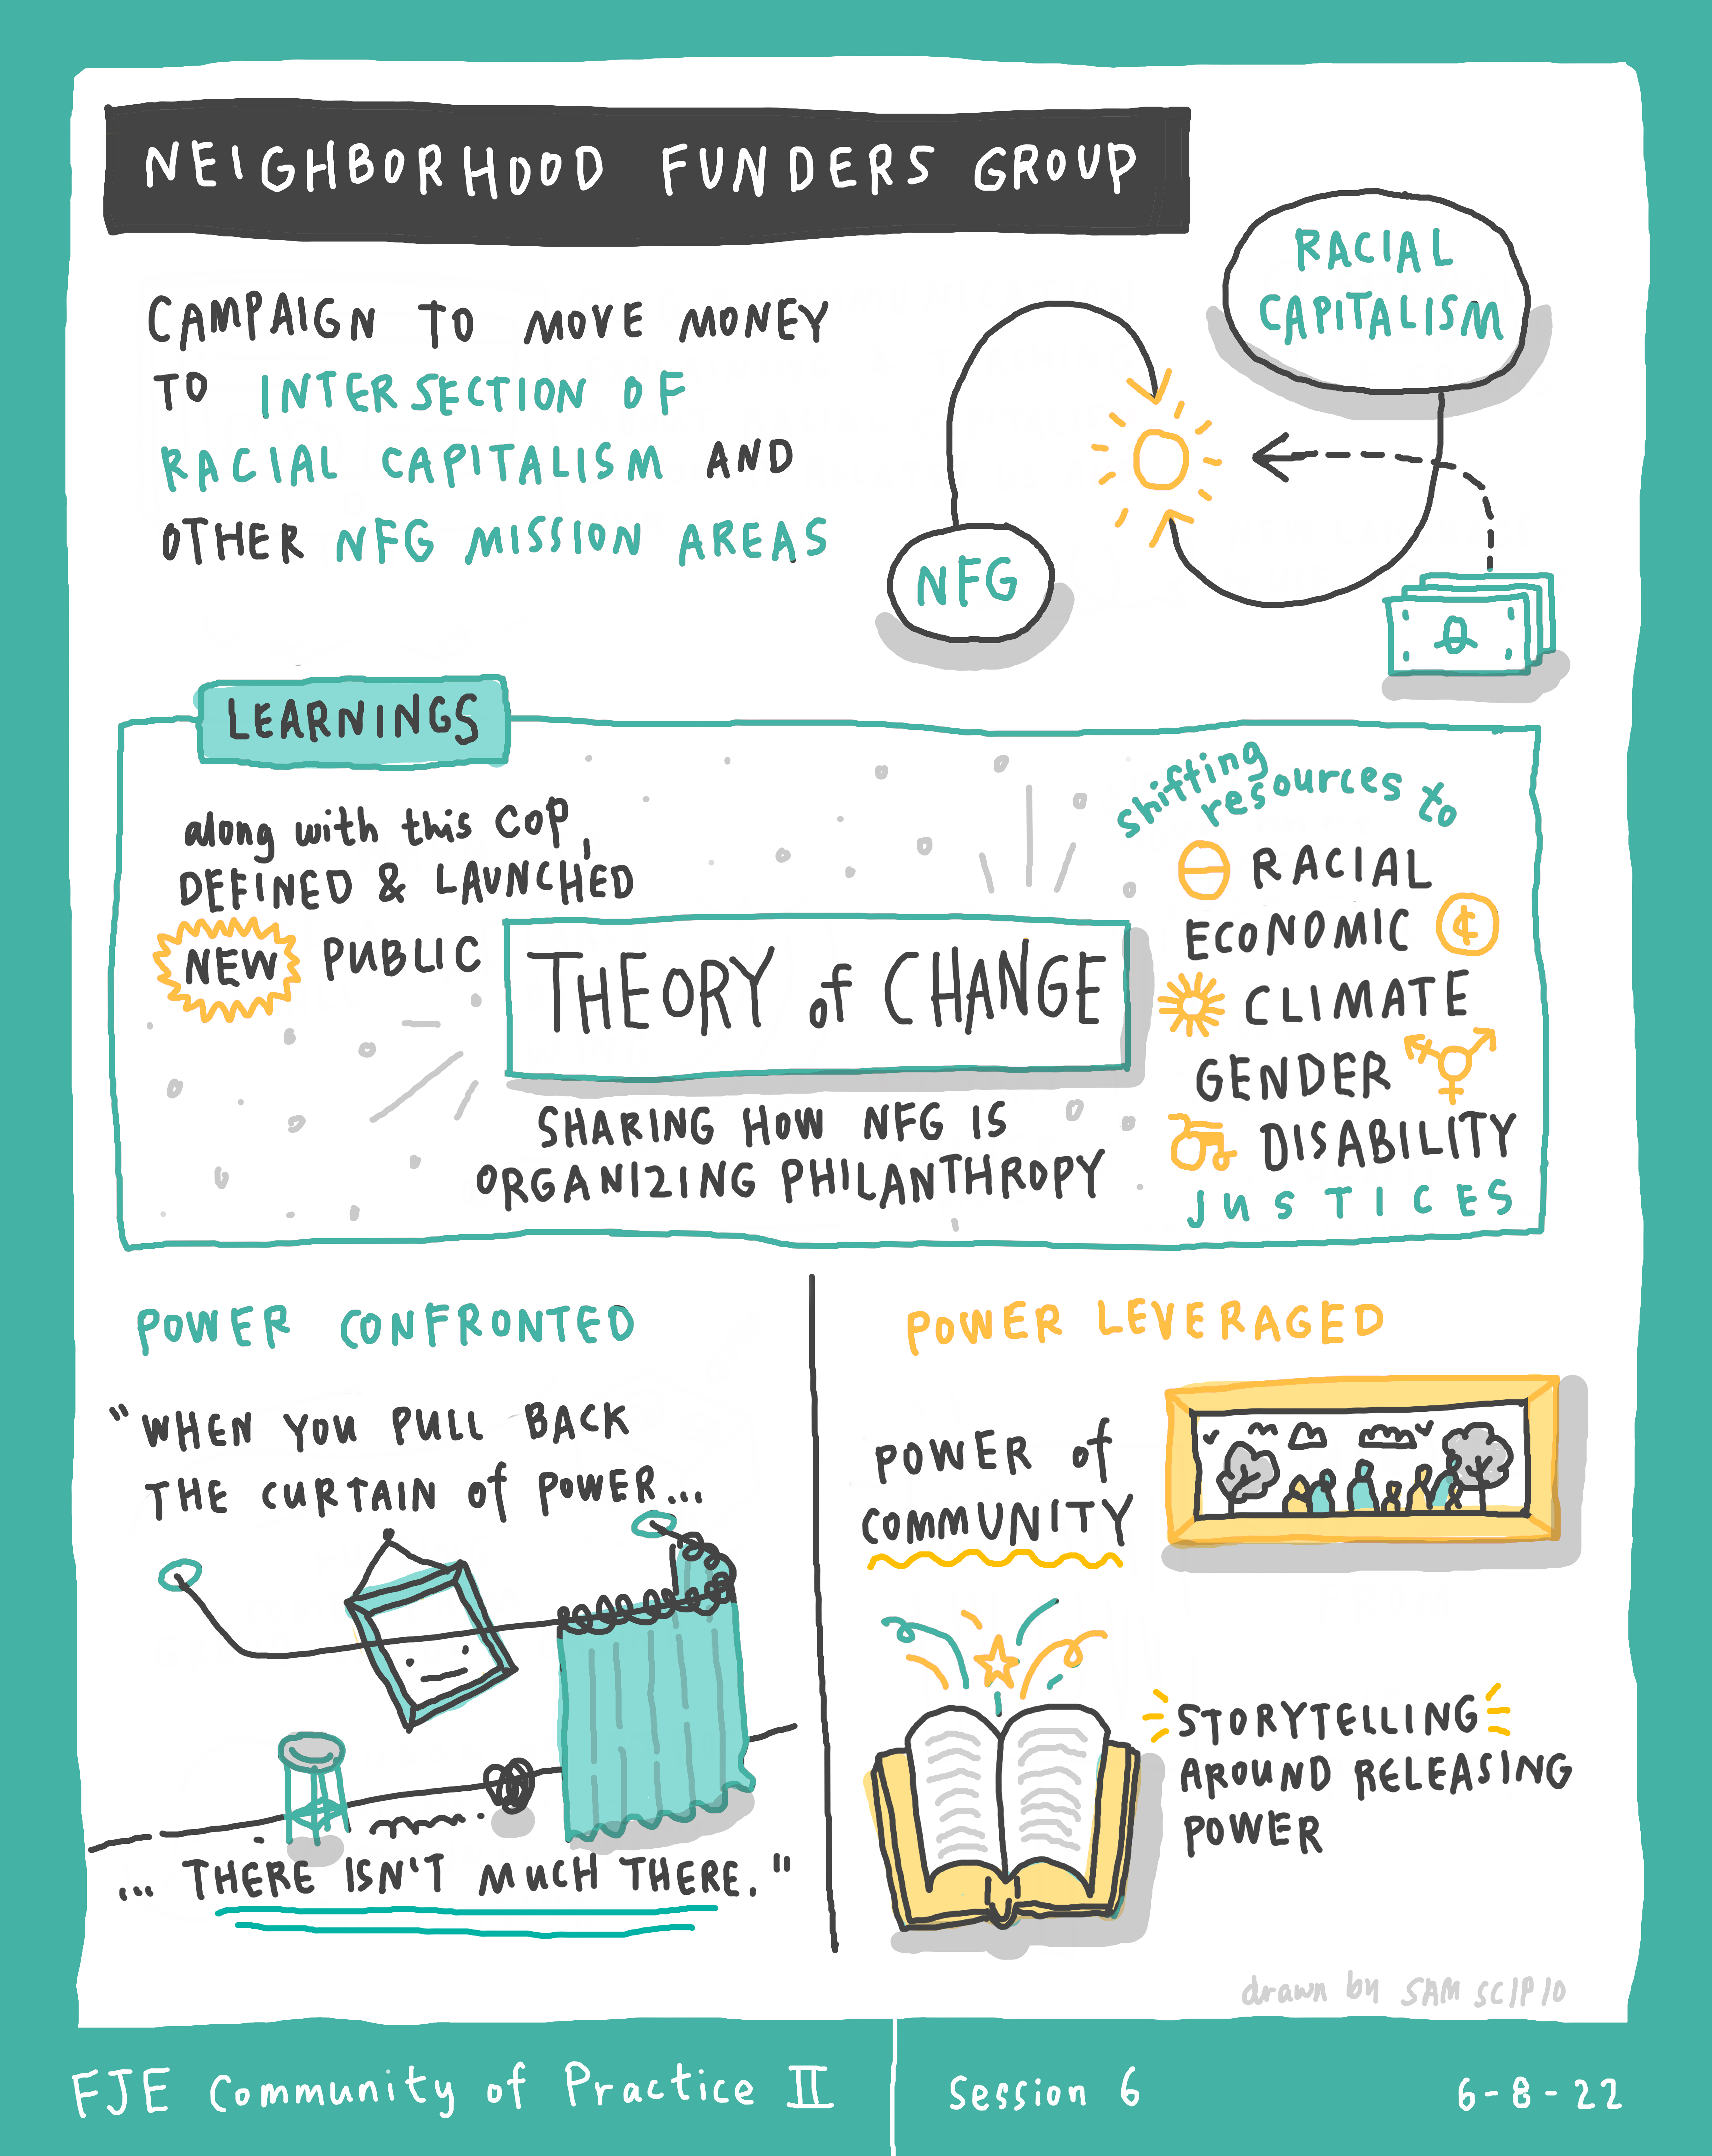 NEIGHBORHOOD FUNDERS GROUP
CAMPAIGN TO MOVE MONEY
TO INTERSECTION OF
RACIAL CAPITALISM AND
OTHER NFG MISSION AREAS
RACIAL
CAPITALISM
NFG
LEARNINGS
along with this CoP,
DEFINED & LAUNCHED
NEW PUBLIC
THEORY of CHANGE
SHARING HOW NFG IS
ORGANIZING PHILANTHROPY
shifting
resources to
RACIAL
ECONOMIC
CLIMATE
GENDER
DISABILITY
JUSTICES
POWER CONFRONTED
"WHEN YOU PULL BACK
THE CURTAIN of POWER...
... THERE ISN'T MUCH THERE."
POWER LEVERAGED
POWER of
COMMUNITY
STORYTELLING
AROUND RELEASING
POWER
drawn by SAM SCIPIO
FJE Community of Practice II
Session 6
6-8-22